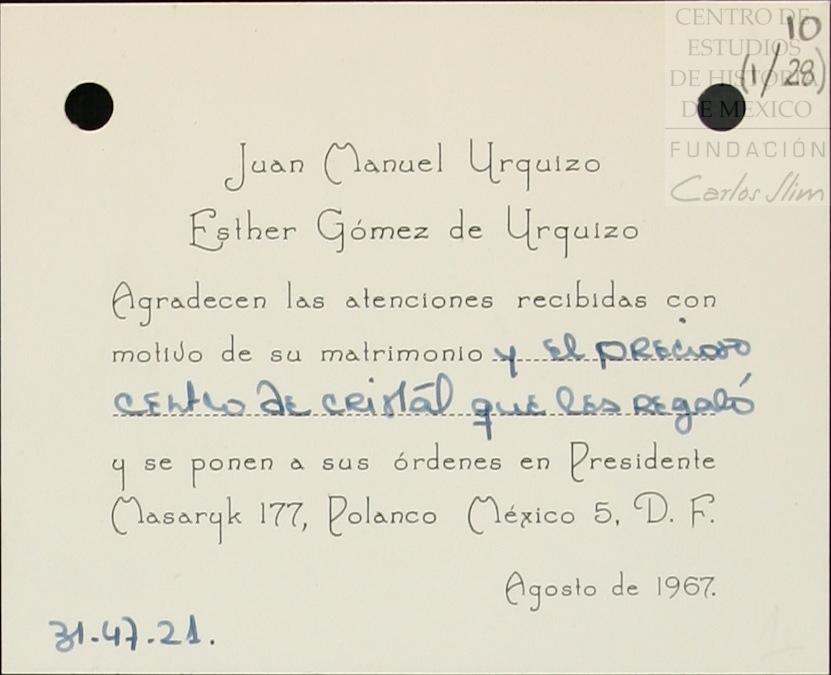 CENTRO DE
ESTUDIOS
DE HISTORIA
DE MEXICO
FUNDACIÓN
Carlos Slim
10
(1/28)
Juan Manuel Urquizo
Esther Gómez de Urquizo
Agradecen las atenciones recibidas con
motivo de su matrimonio y el precioso
centro de cristál que les regaló
y se ponen a sus órdenes en Presidente
Masaryk 177, Polanco México 5, D. F.
Agosto de 1967.
31-47-21.